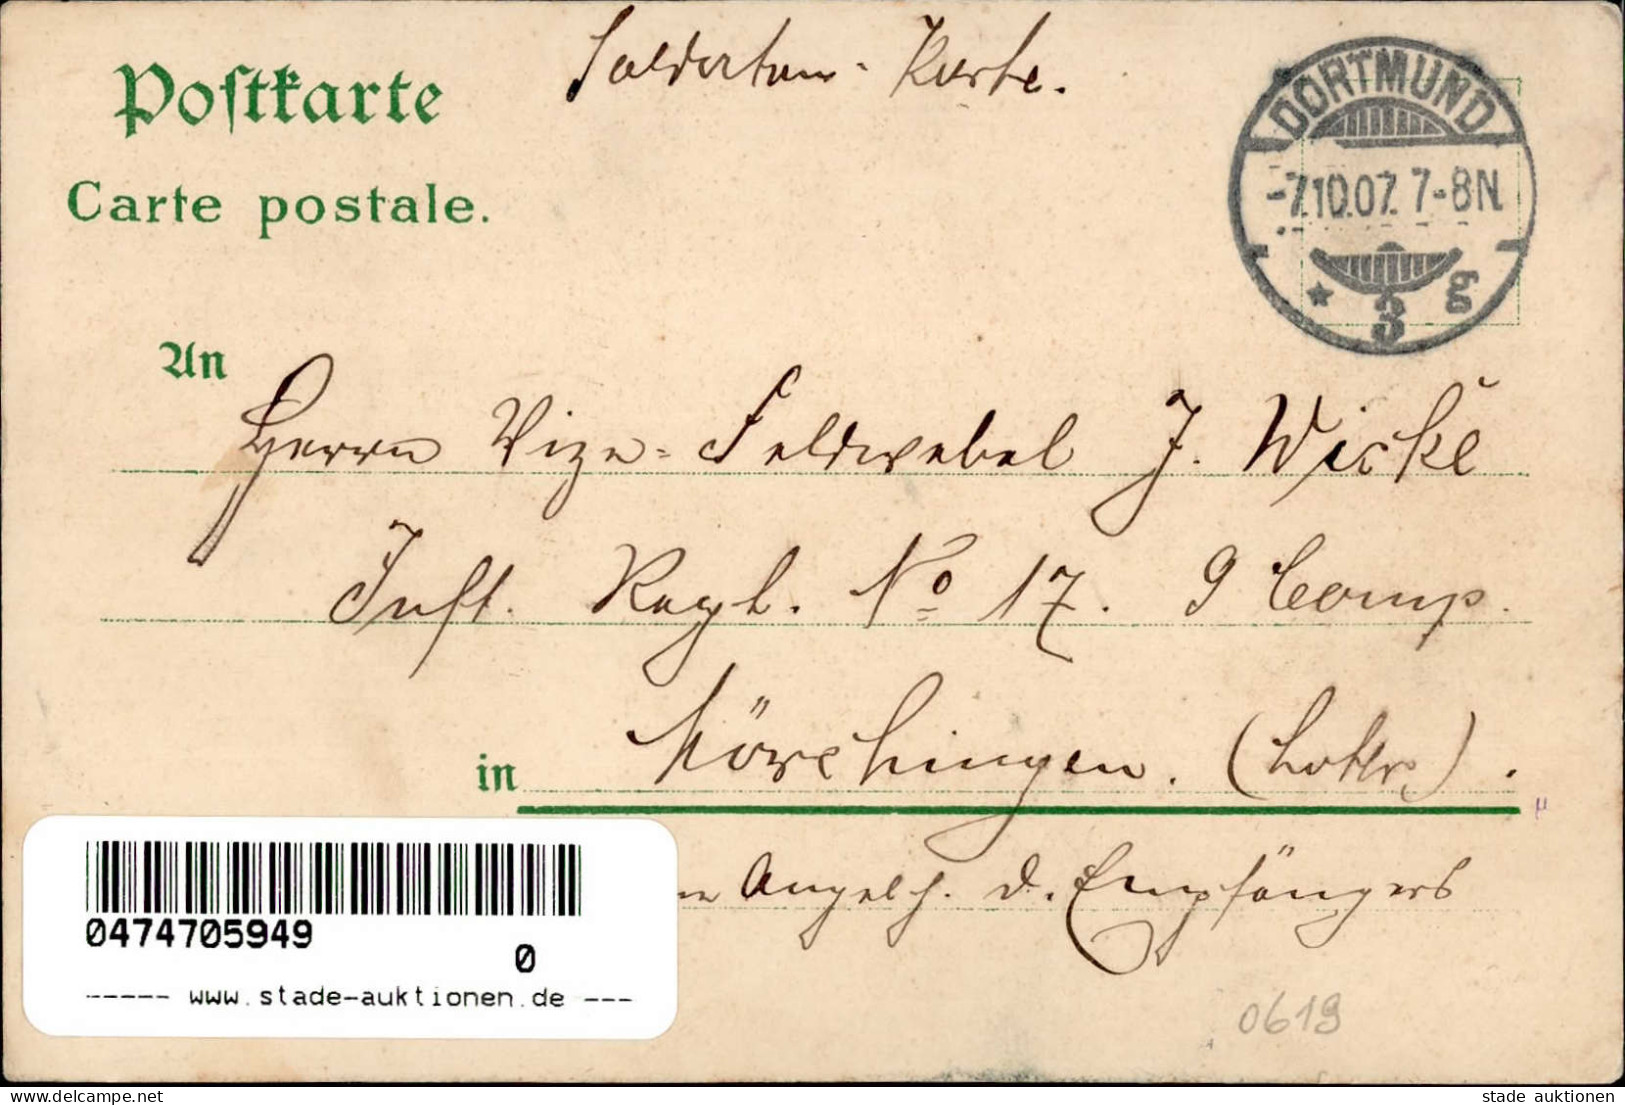 Soldaten-Karte.
Postkarte
Carte postale.
DORTMUND
-7.10.07. 7-8N.
* 3 g
An
Herrn Vize-Feldwebel J. Wicke
Inft. Regt. No 17. 9 Comp.
in Mörchingen. (Lothr).
Angelg. d. Empfängers
0474705949
0
----- www.stade-auktionen.de ---
0619
www.delcampe.net
stade auktionen